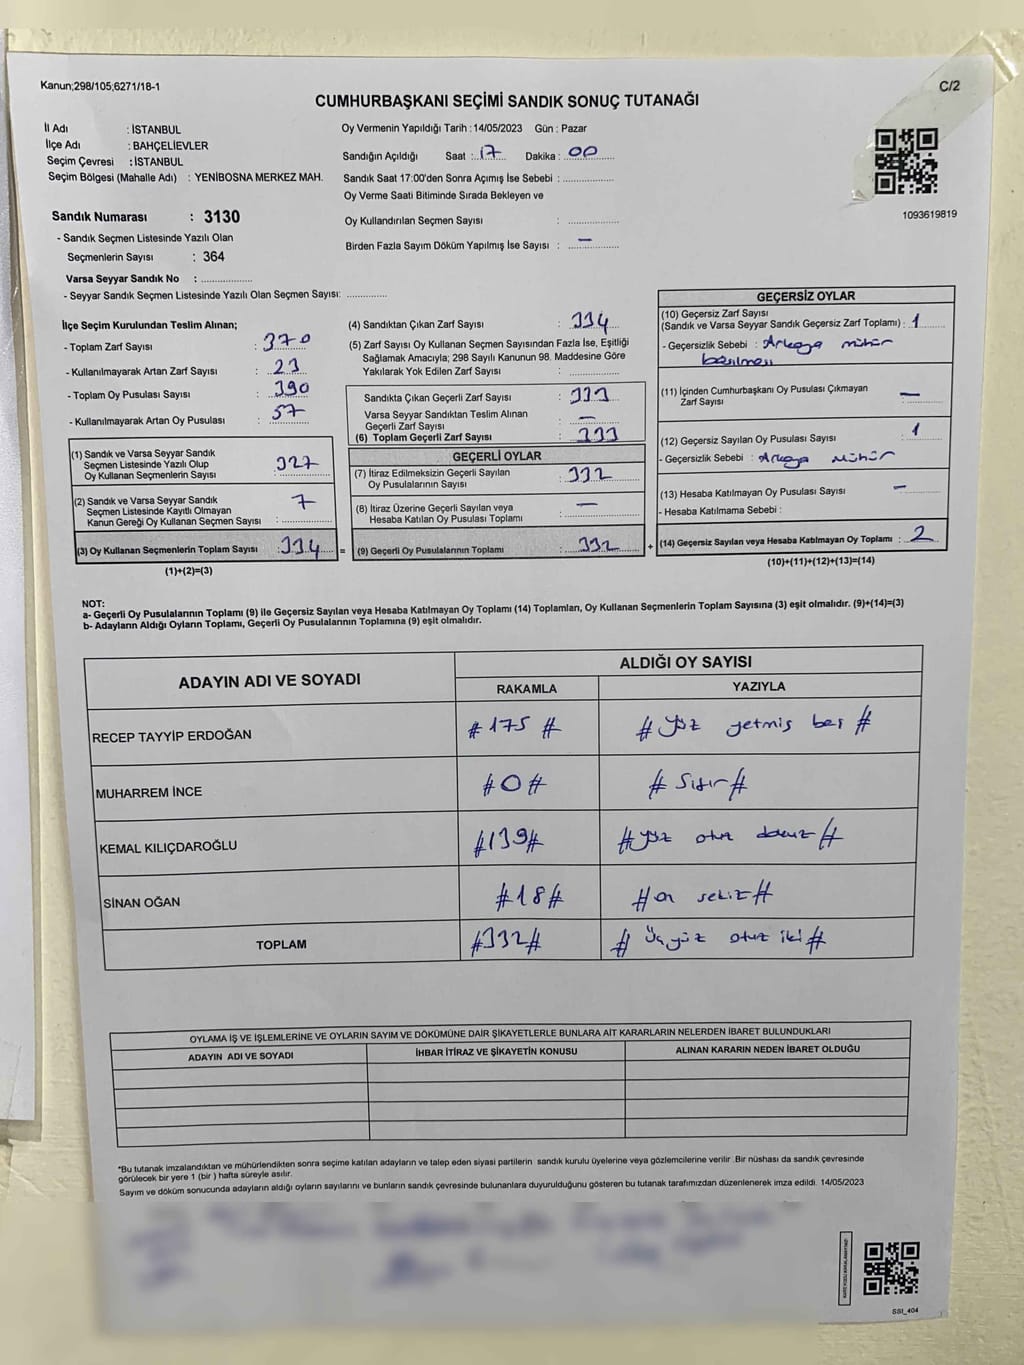 Kanun;298/105;6271/18-1
C/2
CUMHURBAŞKANI SEÇİMİ SANDIK SONUÇ TUTANAĞI
İl Adı : İSTANBUL
İlçe Adı : BAHÇELİEVLER
Seçim Çevresi : İSTANBUL
Seçim Bölgesi (Mahalle Adı) : YENİBOSNA MERKEZ MAH.
Sandık Numarası : 3130
- Sandık Seçmen Listesinde Yazılı Olan
Seçmenlerin Sayısı : 364
Varsa Seyyar Sandık No : ..................
- Seyyar Sandık Seçmen Listesinde Yazılı Olan Seçmen Sayısı: ..............
Oy Vermenin Yapıldığı Tarih : 14/05/2023 Gün : Pazar
Sandığın Açıldığı Saat : 17 Dakika : 00
Sandık Saat 17:00'den Sonra Açımış İse Sebebi : ..................
Oy Verme Saati Bitiminde Sırada Bekleyen ve
Oy Kullandırılan Seçmen Sayısı : ..................
Birden Fazla Sayım Döküm Yapılmış İse Sayısı : —
1093619819
İlçe Seçim Kurulundan Teslim Alınan;
- Toplam Zarf Sayısı : 370
- Kullanılmayarak Artan Zarf Sayısı : 23
- Toplam Oy Pusulası Sayısı : 390
- Kullanılmayarak Artan Oy Pusulası : 57
(1) Sandık ve Varsa Seyyar Sandık
Seçmen Listesinde Yazılı Olup
Oy Kullanan Seçmenlerin Sayısı : 327
(2) Sandık ve Varsa Seyyar Sandık
Seçmen Listesinde Kayıtlı Olmayan
Kanun Gereği Oy Kullanan Seçmen Sayısı : 7
(3) Oy Kullanan Seçmenlerin Toplam Sayısı : 334 =
(1)+(2)=(3)
(4) Sandıktan Çıkan Zarf Sayısı : 334
(5) Zarf Sayısı Oy Kullanan Seçmen Sayısından Fazla İse, Eşitliği
Sağlamak Amacıyla; 298 Sayılı Kanunun 98. Maddesine Göre
Yakılarak Yok Edilen Zarf Sayısı : ..................
Sandıkta Çıkan Geçerli Zarf Sayısı : 333
Varsa Seyyar Sandıktan Teslim Alınan
Geçerli Zarf Sayısı : —
(6) Toplam Geçerli Zarf Sayısı : 333
GEÇERLİ OYLAR
(7) İtiraz Edilmeksizin Geçerli Sayılan
Oy Pusulalarının Sayısı : 332
(8) İtiraz Üzerine Geçerli Sayılan veya
Hesaba Katılan Oy Pusulası Toplamı : —
(9) Geçerli Oy Pusulalarının Toplamı : 332 +
GEÇERSİZ OYLAR
(10) Geçersiz Zarf Sayısı
(Sandık ve Varsa Seyyar Sandık Geçersiz Zarf Toplamı) : 1
- Geçersizlik Sebebi : Arkaya mühür
basılması
(11) İçinden Cumhurbaşkanı Oy Pusulası Çıkmayan
Zarf Sayısı : —
(12) Geçersiz Sayılan Oy Pusulası Sayısı : 1
- Geçersizlik Sebebi : Arkaya mühür
(13) Hesaba Katılmayan Oy Pusulası Sayısı : —
- Hesaba Katılmama Sebebi :
(14) Geçersiz Sayılan veya Hesaba Katılmayan Oy Toplamı : 2
(10)+(11)+(12)+(13)=(14)
NOT:
a- Geçerli Oy Pusulalarının Toplamı (9) ile Geçersiz Sayılan veya Hesaba Katılmayan Oy Toplamı (14) Toplamları, Oy Kullanan Seçmenlerin Toplam Sayısına (3) eşit olmalıdır. (9)+(14)=(3)
b- Adayların Aldığı Oyların Toplamı, Geçerli Oy Pusulalarının Toplamına (9) eşit olmalıdır.
ADAYIN ADI VE SOYADI ALDIĞI OY SAYISI
RAKAMLA YAZIYLA
RECEP TAYYİP ERDOĞAN #175# #Yüz yetmiş beş#
MUHARREM İNCE #0# #Sıfır#
KEMAL KILIÇDAROĞLU #139# #yüz otuz dokuz#
SİNAN OĞAN #18# #on sekiz#
TOPLAM #332# #Üçyüz otuz iki#
OYLAMA İŞ VE İŞLEMLERİNE VE OYLARIN SAYIM VE DÖKÜMÜNE DAİR ŞİKAYETLERLE BUNLARA AİT KARARLARIN NELERDEN İBARET BULUNDUKLARI
ADAYIN ADI VE SOYADI İHBAR İTİRAZ VE ŞİKAYETİN KONUSU ALINAN KARARIN NEDEN İBARET OLDUĞU
*Bu tutanak imzalandıktan ve mühürlendikten sonra seçime katılan adayların ve talep eden siyasi partilerin sandık kurulu üyelerine veya gözlemcilerine verilir. Bir nüshası da sandık çevresinde
görülecek bir yere 1 (bir ) hafta süreyle asılır.
Sayım ve döküm sonucunda adayların aldığı oyların sayılarını ve bunların sandık çevresinde bulunanlara duyurulduğunu gösteren bu tutanak tarafımızdan düzenlenerek imza edildi. 14/05/2023
SSI_404